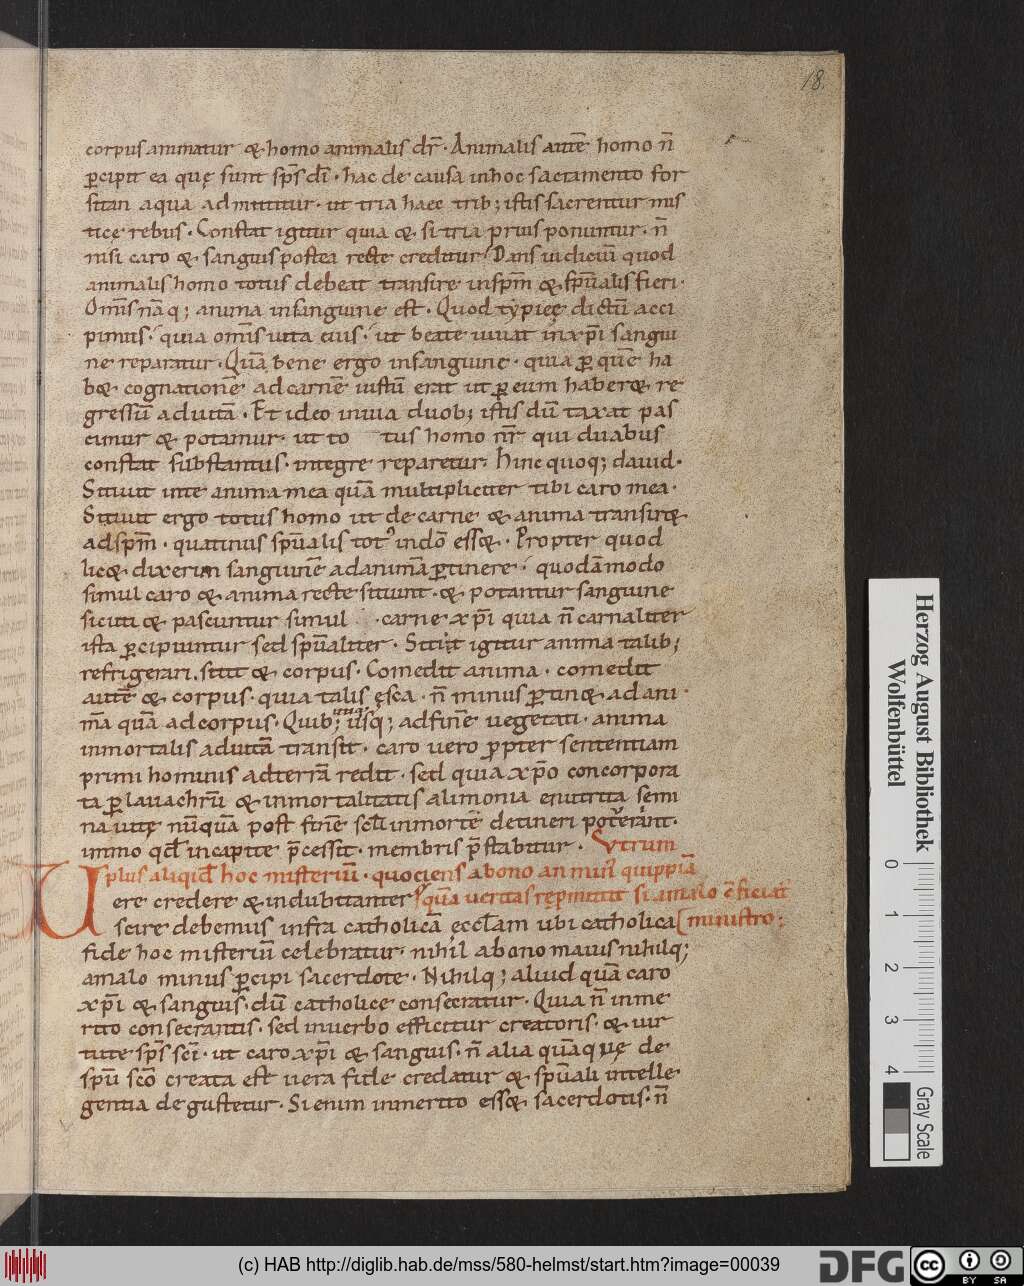 18.
corpus animatur & homo animalis dr̄. Animalis autē homo n̄
ꝑcipit ea quę sunt sp̄s dī. hac de causa inhoc sacramento for
sitan aqua admittitur. ut tria haec trib; istis sacrentur mis
ticę rebus. Constat igitur quia & si tria prius ponuntur. n̄
nisi caro & sanguis postea recte creditur. Dans iudiciū quod
animalis homo totus debeat transire insp̄m & sp̄ualis fieri.
Om̄is nāq; anima insanguine est. Quod typicę dictū acci
pimus. quia om̄is uita eius. ut beate uiuat inxp̄i sangui
ne reparatur. Quā bene ergo insanguine. quia ꝑ quē ha
b& cognationē ad carnē iustū erat ut ꝑ eum haber& re
gressū aduitā. Et ideo inuia duob; istis dū taxat pas
cimur & potamur. ut to tus homo nr̄ qui duabus
constat substantiis. integre reparetur. Hinc quoq; dauid.
Sitiuit inte anima mea quā multipliciter tibi caro mea.
Sitiuit ergo totus homo ut de carne & anima transir&
adsp̄m. quatinus sp̄ualis tot' indō ess&. Propter quod
lic& dixerim sanguinē adanimā ꝑtinere. quodāmodo
simul caro & anima recte sitiunt. & potantur sanguine
sicuti & pascuntur simul carne xp̄i quia n̄ carnaliter
ista ꝑcipiuntur sed sp̄ualiter. Sitiit igitur anima talib;
refrigerari. sitit & corpus. Comedit anima. comedit
autē & corpus. quia talis ęsca. n̄ minus ꝑtin& ad ani
mā quā adcorpus. Quib; usq; adfinē uegetati. anima
inmortalis aduitā transit. caro uero ꝓpter sententiam
primi hominis adterrā redit. sed quia xp̄o concorpora
ta ꝑ lauachrū & inmortalitatis alimonia enutrita semi
na uitę nūquā post finē sc̄li inmorte detineri poterant.
immo qd̄ incapite p̄cessit. membris p̄stabitur. Vtrum
plus aliqid̄ hoc misteriū. quociens abono an
Uere credere & indubitanter si quā ueritas repmittit si amalo ꝯficiat̄
scire debemus infra catholicā ęccl̄am ubi catholica [ministro;
fide hoc misteriū celebratur. nihil abono maius nihilq;
amalo minus ꝑcipi sacerdote. Nihilq; aliud quā caro
xp̄i & sanguis. dū catholice consecratur. Quia n̄ inme
rito consecrantis. sed inuerbo efficitur creatoris. & uir
tute sp̄s sc̄i. ut caro xp̄i & sanguis. n̄ alia quāquę de
sp̄u sc̄o creata est uera fide credatur & sp̄uali intelle
gentia degustetur. Si enim inmerito ess& sacerdotis. n̄
Herzog August Bibliothek
Wolfenbüttel
0 1 2 3 4
Gray Scale
(c) HAB http://diglib.hab.de/mss/580-helmst/start.htm?image=00039
DFG
cc
BY SA